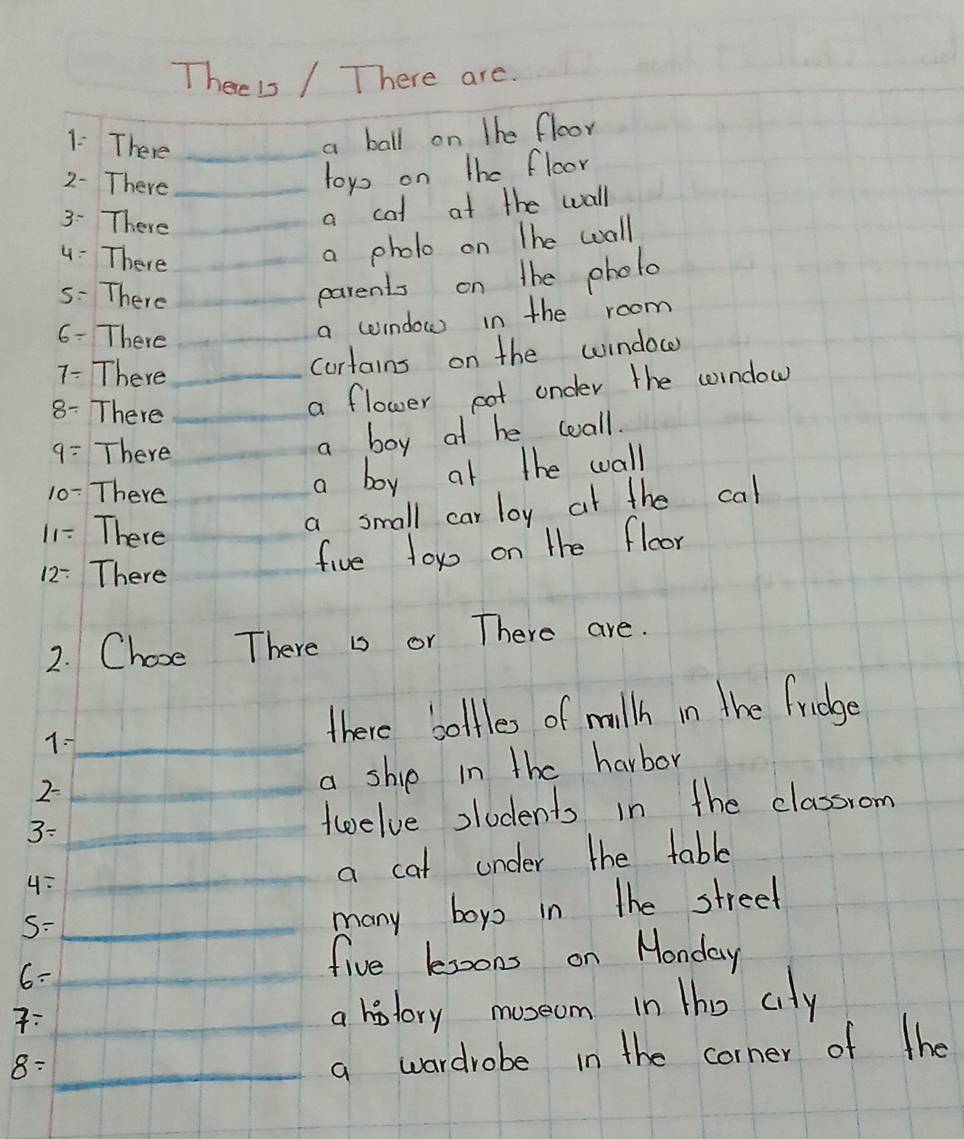 There is / There are.
1- There ______ a ball on the floor
2- There ______ toys on the floor
3- There ______ a cat at the wall
4- There ______ a photo on the wall
5- There ______ parents on the photo
6- There ______ a window in the room
7- There ______ curtains on the window
8- There ______ a flower pot under the window
9- There ______ a boy at he wall.
10- There ______ a boy at the wall
11- There ______ a small car toy at the cat
12- There ______ five toys on the floor
2. Chose There is or There are.
1- ______ there bottles of milk in the fridge
2- ______ a ship in the harbor
3- ______ twelve students in the classrom
4- ______ a cat under the table
5- ______ many boys in the street
6- ______ five lessons on Monday
7- ______ a history museum in this city
8- ______ a wardrobe in the corner of the